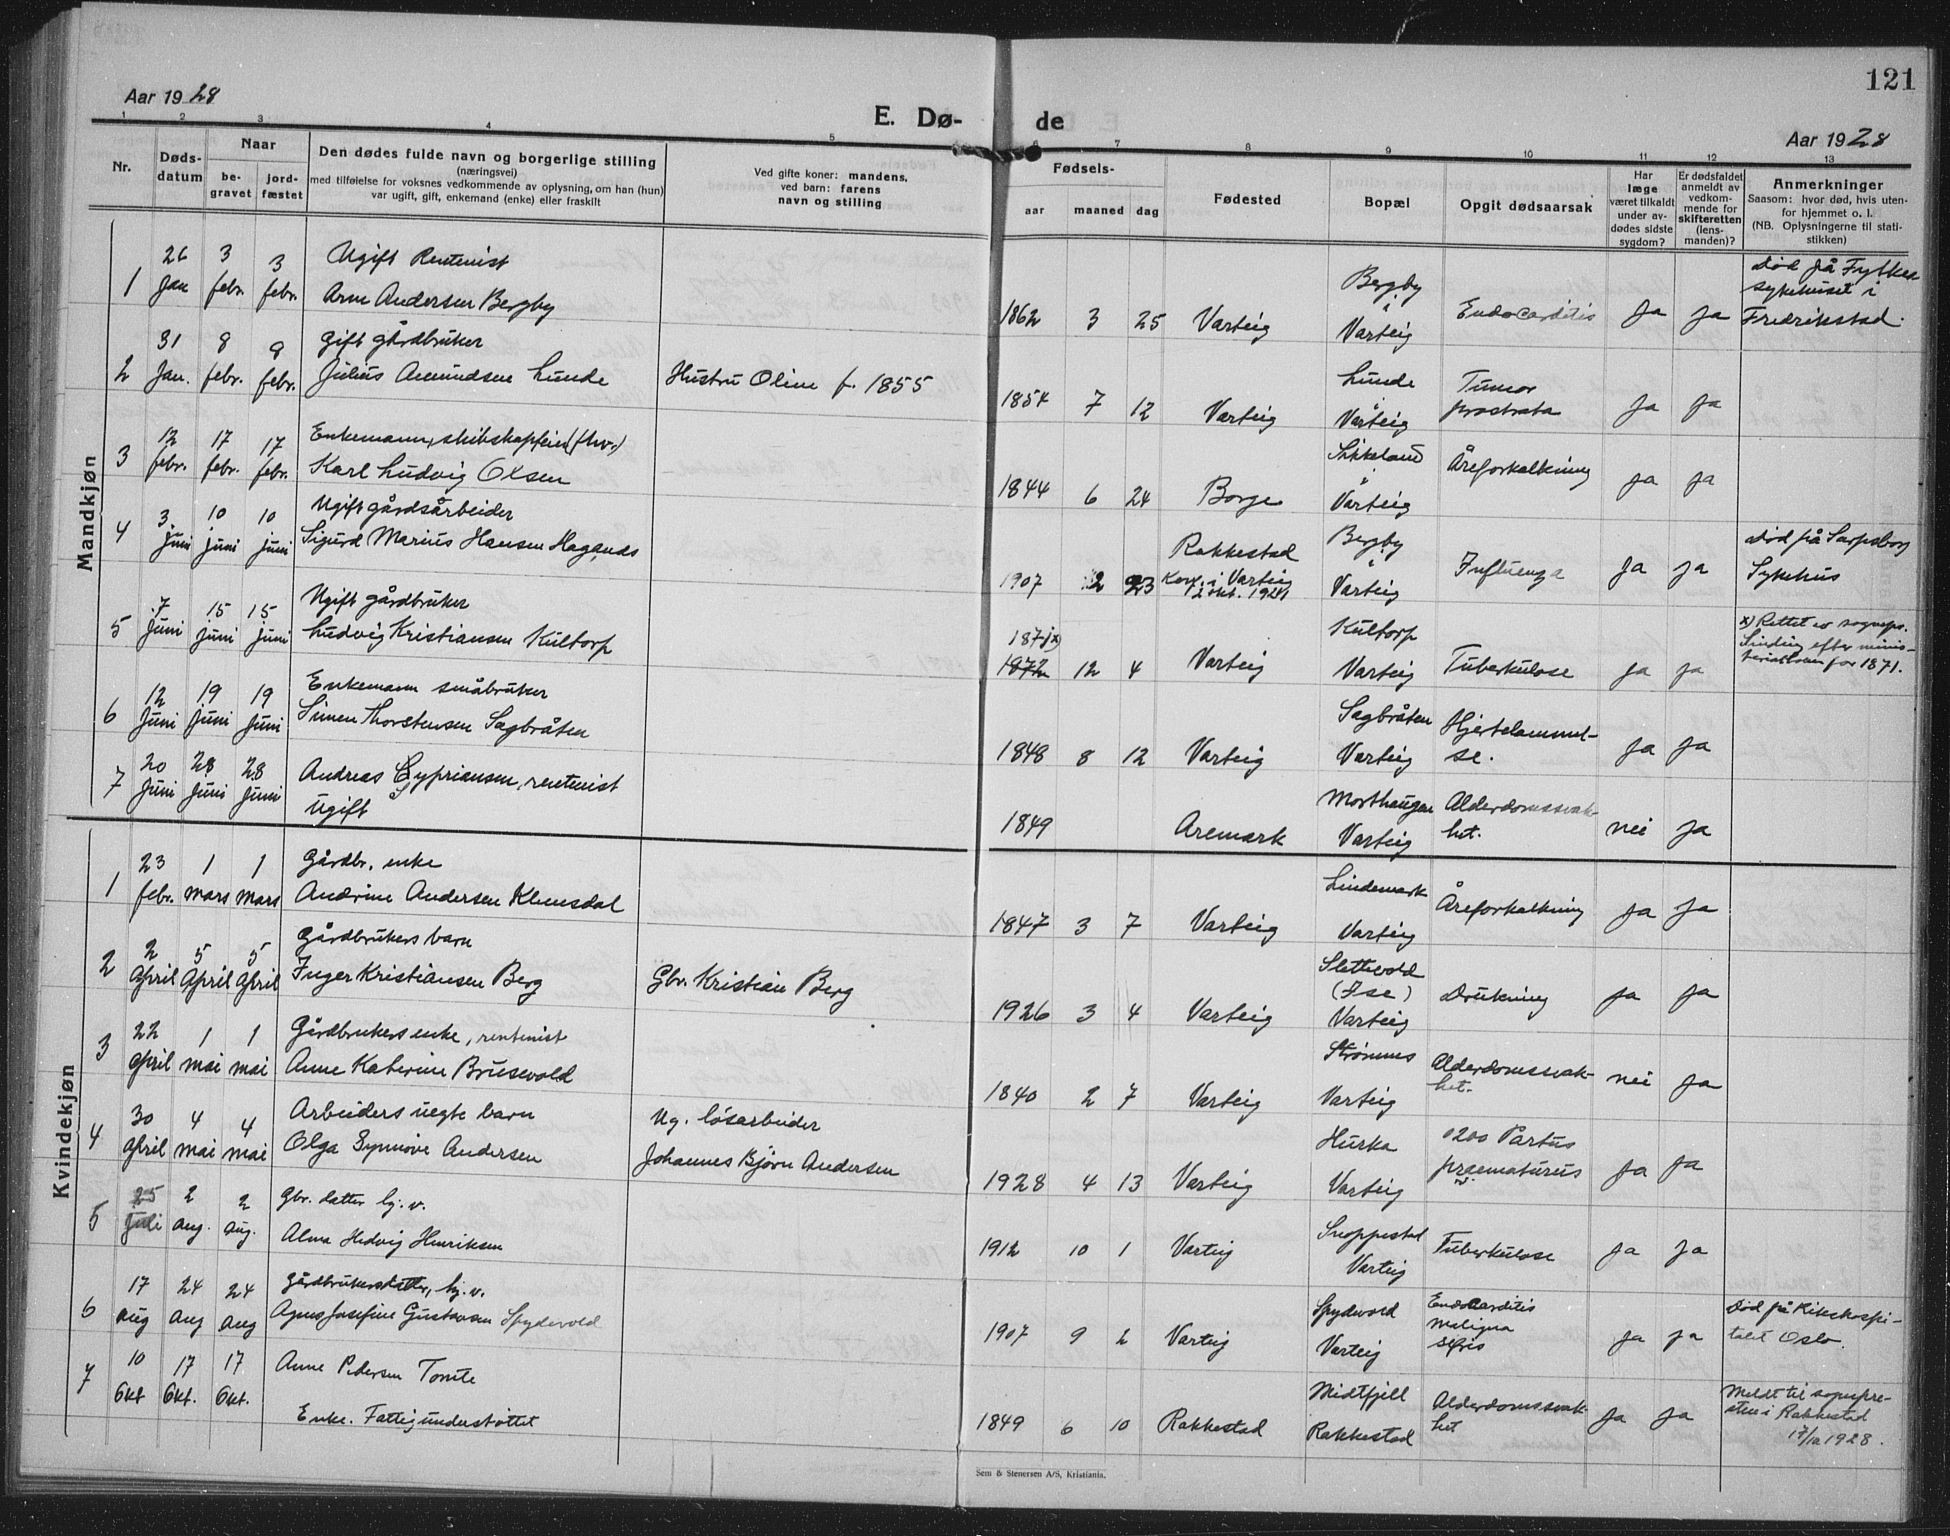 121
Aar 1928
E. Dø- de
Aar 1928
1 2 3 4 5 6 7 8 9 10 11 12 13
Nr.
Døds-
datum
Naar
be-
gravet
jord-
fæstet
Den dødes fulde navn og borgerlige stilling
(næringsvei)
med tilføielse for voksnes vedkommende av oplysning, om han (hun)
var ugift, gift, enkemand (enke) eller fraskilt
Ved gifte koner: mandens,
ved barn: farens
navn og stilling
Fødsels-
aar maaned dag
Fødested
Bopæl
Opgit dødsaarsak
Har
læge
været tilkaldt
under av-
dødes sidste
sygdom?
Er dødsfaldet
anmeldt av
vedkom-
mende for
skifteretten
(lens-
manden)?
Anmerkninger
Saasom: hvor død, hvis uten-
for hjemmet o. l.
(NB. Oplysningerne til stati-
stikken)
Mandkjøn
26 3 3 Ugift Rentenist
1 Jan febr. febr. Arne Andersen Bergby
1862 3 25 Varteig
Bergby
i
Varteig
Endocarditis Ja Ja
Død på Fylkes
sykehuset i
Fredrikstad.
31 8 8 Gift gårdbruker
2 Jan. febr. febr. Julius Amundsen Lunde Hustru Oline f. 1855
1854 7 12 Varteig
Lunde
Varteig
Tumor
prostrata
Ja Ja
12 17 17 Enkemann, skibskaptein (fhv.)
3 febr. febr. febr. Karl Ludvig Olsen
1844 6 24 Borge
Sikkeland
Varteig
Åreforkalkning Ja Ja
3. 10 10 Ugift gårdsarbeider
4 juni juni juni Sigurd Marius Hansen Hagands
1907 2 23
Rakkestad
Konf. i Varteig
2 okt. 1921
Bergby
i
Varteig
Influenza Ja Ja
Død på Sarpsborg
Sykehus
7 15 15 Ugift gårdbruker
5 juni juni juni Ludvig Kristiansen Kultorp
1871x)
1872 12 4 Varteig
Kultorp
Varteig
Tuberkulose Ja Ja
x) Rettet av sogneps.
Sinding efter minis-
terialboken for 1871.
12 19 19 Enkemann småbruker
6 Juni Juni Juni Simen Thorstensen Sagbråten
1848 8 12 Varteig
Sagbråten
Varteig
Hjertelammel-
se.
Ja Ja
20 28 28 Andreas Cypriansen, rentenist
7 Juni Juni Juni Ugift
1849 Aremark
Morthaugen
Varteig
Alderdomssvak-
het.
nei Ja
Kvindekjøn
23 1 1 Gårdbr. enke
1 febr. mars mars Andrine Andersen Klemsdal
1847 3 7 Varteig
Lindemark
Varteig
Åreforkalkning Ja Ja
2 5 5 Gårdbrukers barn
2 April April April Inger Kristiansen Berg Gbr. Kristian Berg
1926 3 4 Varteig
Slettevold
(Ise)
Varteig
Drukning Ja Ja
22 1 1 Gårdbrukers enke, rentenist
3 april mai mai Anne Katerine Brusevold
1840 2 7 Varteig
Strømnes
Varteig
Alderdomssvak-
het.
nei Ja
30 4 4 Arbeiders uegte barn
4 april mai mai Olga Synnøve Andersen
Ug. løsarbeider
Johannes Bjørn Andersen
1928 4 13 Varteig
Hurka
Varteig
0200 Partus
praematurus
Ja Ja
25 2 2 Gbr. datter hj. v.
5 Juli aug. aug. Alma Hedvig Henriksen
1912 10 1 Varteig
Snoppestad
Varteig
Tuberkulose Ja Ja
17 24 24 Gårdbrukersdatter, hj. v.
6 aug aug aug Agnes Josefine Gustavsen Spydevold
1907 9 2 Varteig
Spydevold
Varteig
Endocarditis
maligna
Ja Ja
Død på Rikshospi-
talet Oslo.
10 17 17 Anne Pedersen Tomte
7 Okt Okt. Okt. Enke. Fattigunderstøttet
1849 6 10 Rakkestad
Midtfjell
Rakkestad
Alderdomssvak-
het
Ja Ja
Meldt til sognepre-
sten i Rakkestad
17/10 1928.
Sem & Stenersen A/S, Kristiania.